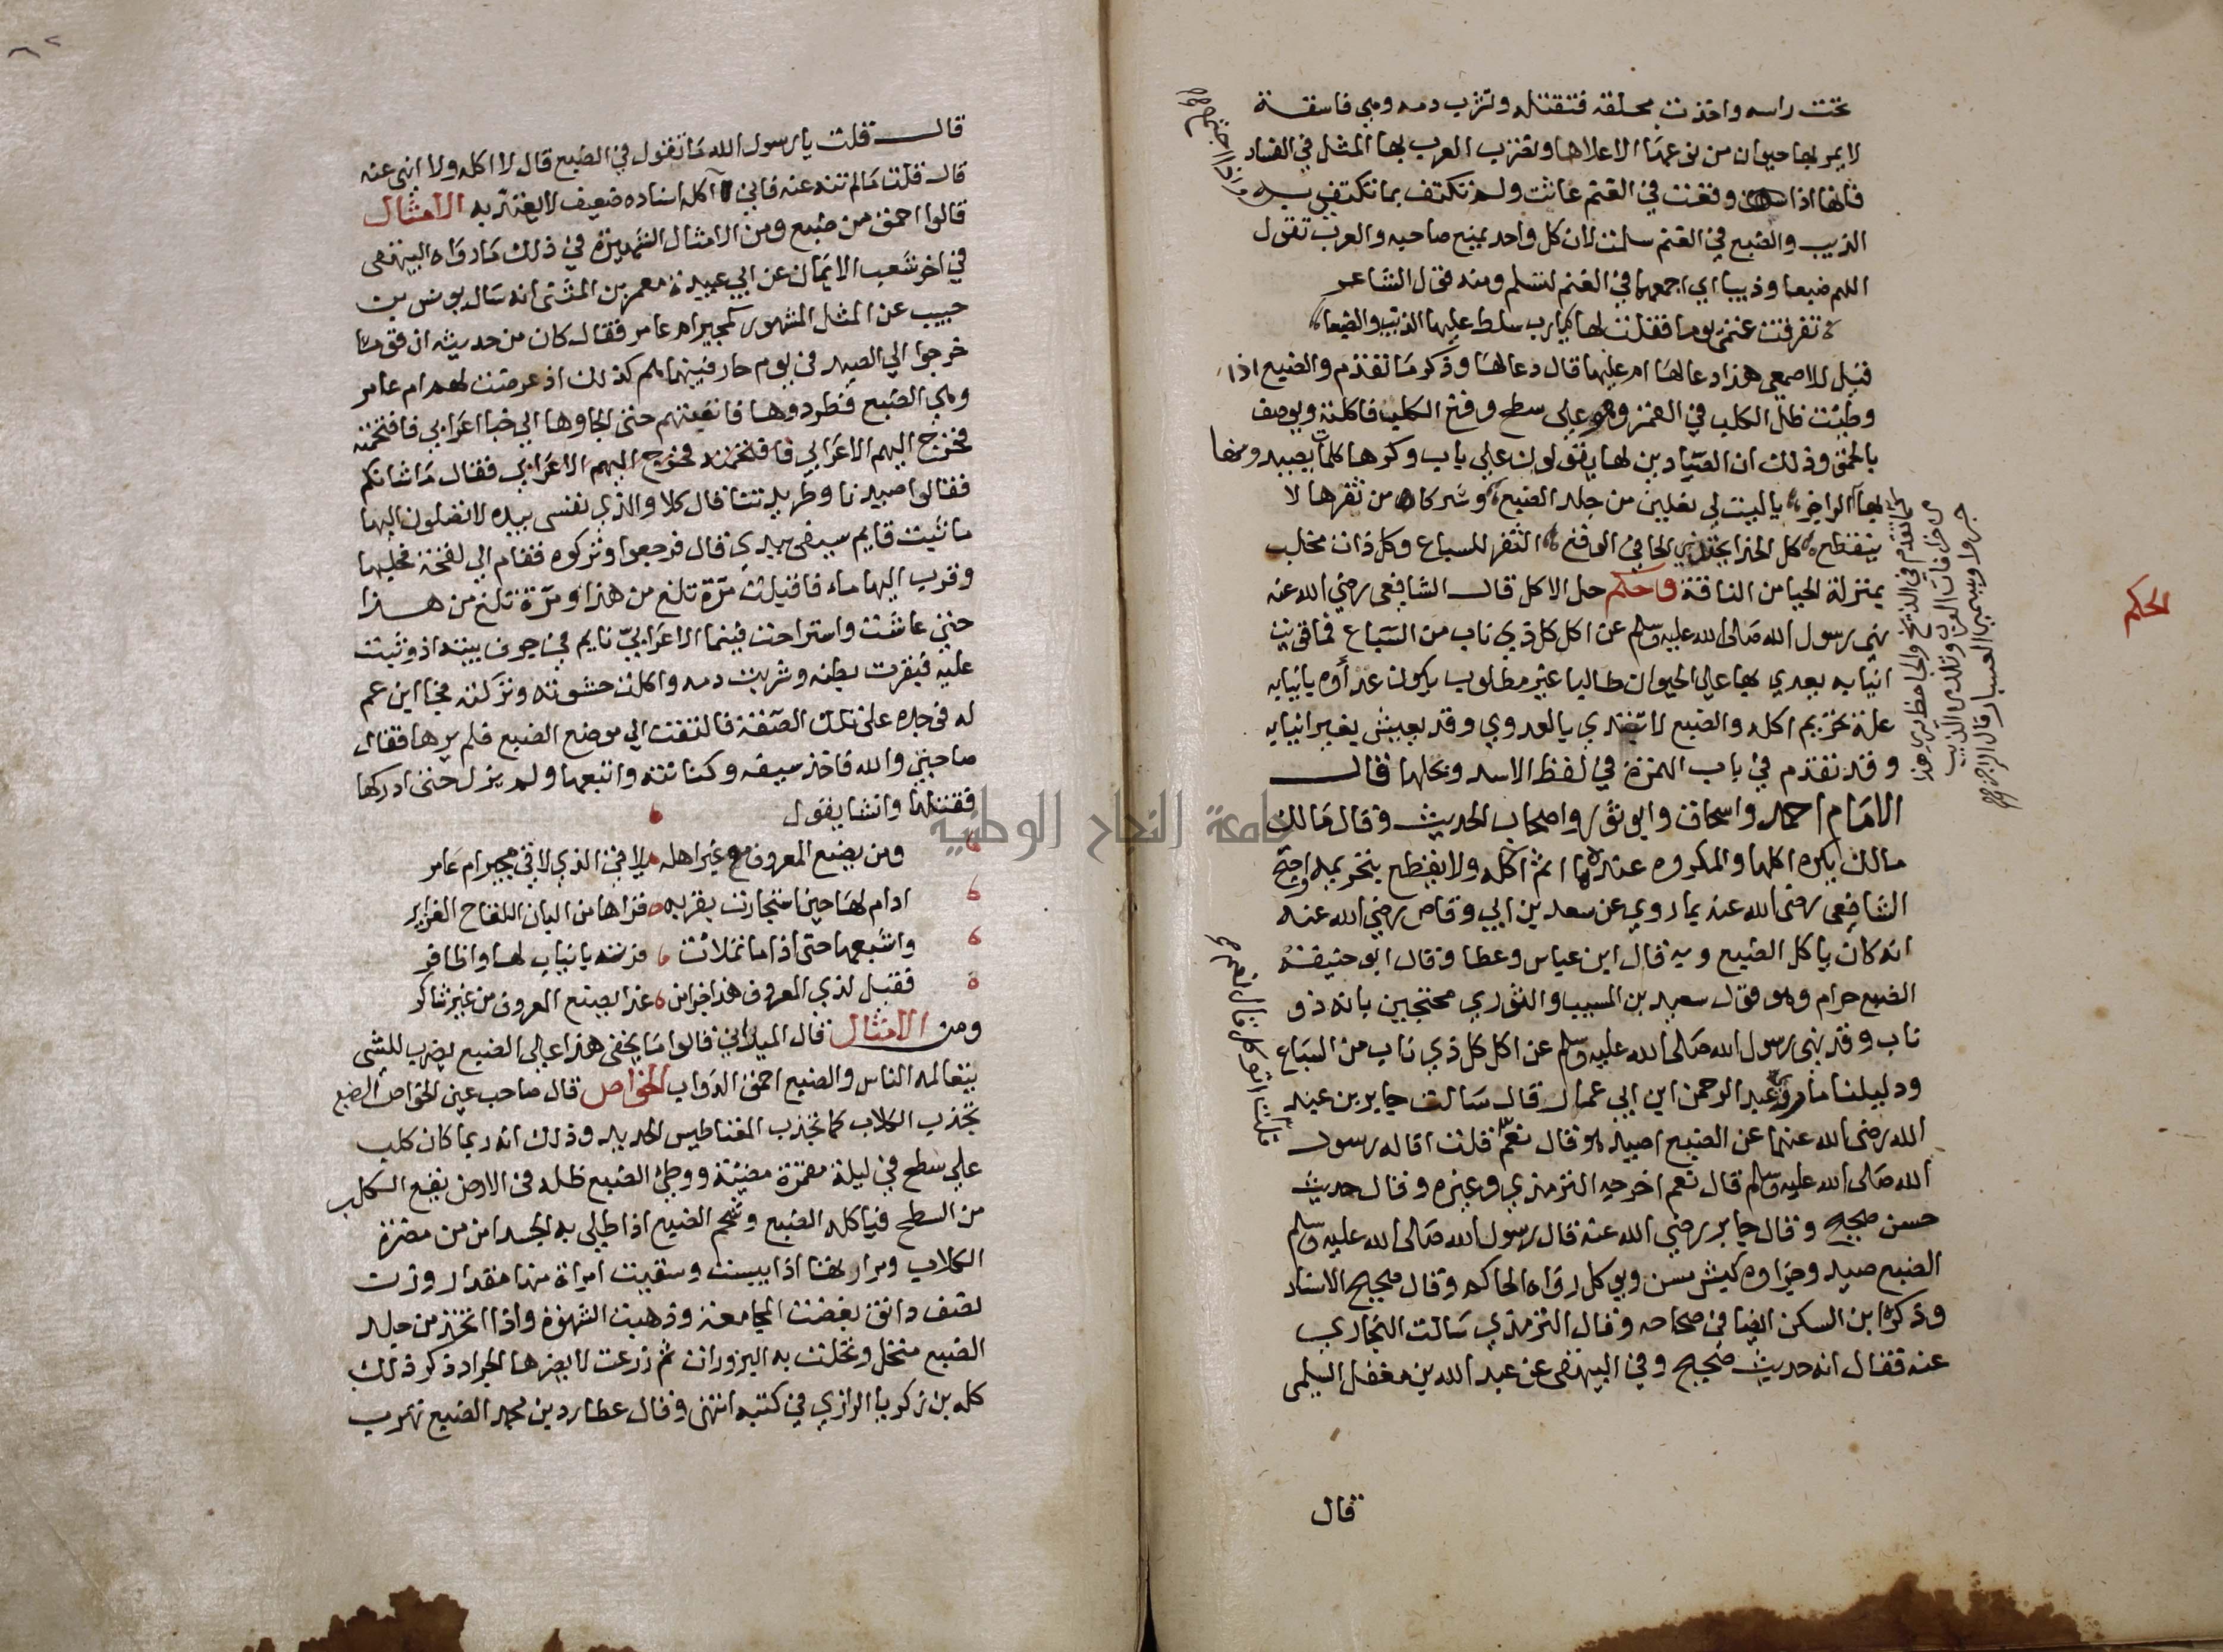 تحت راسه واخذت بحلقه فتقتله وتشرب دمه وهي فاسقة
لا يمر بها حيوان من نوعها الا علاها وتضرب العرب بها المثل في الفساد
فانها اذا وقعت في الغنم عاثت ولم تكتف بما تكتفي به
واذا اجتمع
الذيب والضبع في الغنم سلمت لان كل واحد يمنع صاحبه والعرب تقول
اللهم ضبعا وذيبا اي اجمعهما في الغنم لتسلم ومنه قول الشاعر
تفرقت غنمي يوما فقلت لها يا رب سلط عليها الذيب والضبعا
قيل للاصمعي هذا دعا لها ام عليها قال دعا لها وذكر ما تقدم والضبع اذا
وطئت ظل الكلب في القمر وهو على سطح وقع الكلب فاكلته ويوصف
بالحمق وذلك ان الصيادين لها يقولون على باب وكرها كلمات يصيدونها
بها الراجز يا ليت لي نعلين من جلد الضبع وشركا من ثفرها لا
ينقطع كل الحذا يحتذي الحافي الوقع الثفر للسباع وكل ذات مخلب
بمنزلة الحيا من الناقة وحكم حل الاكل قال الشافعي رضي الله عنه
الحكم
نهى رسول الله صلى الله عليه وسلم عن اكل كل ذي ناب من السباع فما قويت
انيابه يعدي بها على الحيوان طالبا غير مطلوب يكون عداوه بانيابه
علة تحريم اكله والضبع لا تغتذي بالعدوي وقد يعيش بغير انيابه
وقد تقدم في باب الهمزة في لفظ الاسد وبحلها قال
الامام احمد واسحاق وابو ثور واصحاب الحديث وقال مالك
مالك يكره اكلها والمكروه عنده ما اثم اكله ولا يقطع بتحريمه واحتج
الشافعي رضي الله عنه بما روي عن سعد بن ابي وقاص رضي الله عنه
انه كان ياكل الضبع وبه قال ابن عباس وعطا وقال ابو حنيفة
الضبع حرام وهو قول سعيد بن المسيب والثوري محتجين بانه ذو
ناب وقد نهى رسول الله صلى الله عليه وسلم عن اكل كل ذي ناب من السباع
ودليلنا ما روي عبد الرحمن ابن ابي عمار قال سالت جابر بن عبد
الله رضي الله عنهما عن الضبع اصيد هو قال نعم قلت اقاله رسول
قلت اتوكل قال نعم
الله صلى الله عليه وسلم قال نعم اخرجه الترمذي وغيره وقال حديث
حسن صحيح وقال جابر رضي الله عنه قال رسول الله صلى الله عليه وسلم
الضبع صيد وجزاوه كبش مسن ويوكل رواه الحاكم وقال صحيح الاسناد
وذكره ابن السكن ايضا في صحاحه وقال الترمذي سالت البخاري
عنه فقال انه حديث صحيح وفي البيهقي عن عبد الله بن مغفل السلمي
قال
قال قلت يا رسول الله ما تقول في الضبع قال لا اكله ولا انهى عنه
قال قلت ما لم تنه عنه فاني آكله اسناده ضعيف لا يعتد به الامثال
قالوا احمق من ضبع ومن الامثال الشهيرة في ذلك ما رواه البيهقي
في اخر شعب الايمان عن ابي عبيدة معمر بن المثنى انه سال يونس بن
حبيب عن المثل المشهور كمجير ام عامر فقال كان من حديثه ان قوما
خرجوا الي الصيد في يوم حار فبينما هم كذلك اذ عرضت لهم ام عامر
وهي الضبع فطردوها فاتعبتهم حتى الجاوها الي خبا اعرابي فاقتحمته
فخرج اليهم الاعرابي فاقتحمته فخرج اليهم الاعرابي فقال ما شانكم
فقالوا صيدنا وطريدتنا قال كلا والذي نفسي بيده لا تصلون اليها
ما ثبت قايم سيفي بيدي قال فرجعوا وتركوه فقام الي لقحة فحلبها
وقرب اليها ماء فاقبلت مرة تلغ من هذا ومرة تلغ من هذا
حتى عاشت واستراحت فبينما الاعرابي نايم في جوف بيته اذ وثبت
عليه فبقرت بطنه وشربت دمه واكلت حشوته وتركته فجا ابن عم
له فوجده على تلك الصفة فالتفت الي موضع الضبع فلم يرها فقال
صاحبتي والله فاخذ سيفه وكنانته واتبعها ولم يزل حتى ادركها
فقتلها وانشا يقول
ومن يصنع المعروف مع غير اهله يلاقي الذي لاقى مجير ام عامر
ادام لها حين استجارت بقربه قراها من البان اللقاح الغزاير
واشبعها حتى اذا ما تملات فرته بانياب لها واظافر
فقيل لذي المعروف هذا جزا من غدا يصنع المعروف من غير شاكر
ومن الامثال قال الميداني قالوا ما يخفى هذا على الضبع يضرب للشي
يتعالمه الناس والضبع احمق الدواب الخواص قال صاحب عين الخواص الضبع
تجذب الكلاب كما تجذب المغناطيس الحديد وذلك انه ربما كان كلب
علي سطح في ليلة مقمرة مضيئة ووطئ الضبع ظله في الارض يقع الكلب
من السطح فياكله الضبع وشحم الضبع اذا طلي به الجسد امن من مضرة
الكلاب ومرارتها اذا يبست وسقيت امراة منها مقدار وزن
نصف دانق بغضت المجامعة وذهبت الشهوة واذا اتخذ من جلد
الضبع منخل ونخلت به البزورات ثم زرعت لا يضرها الجراد ذكر ذلك
كله بن زكريا الرازي في كتبه انتهى وقال عطارد بن محمد الضبع تهرب
جامعة النجاح الوطنية